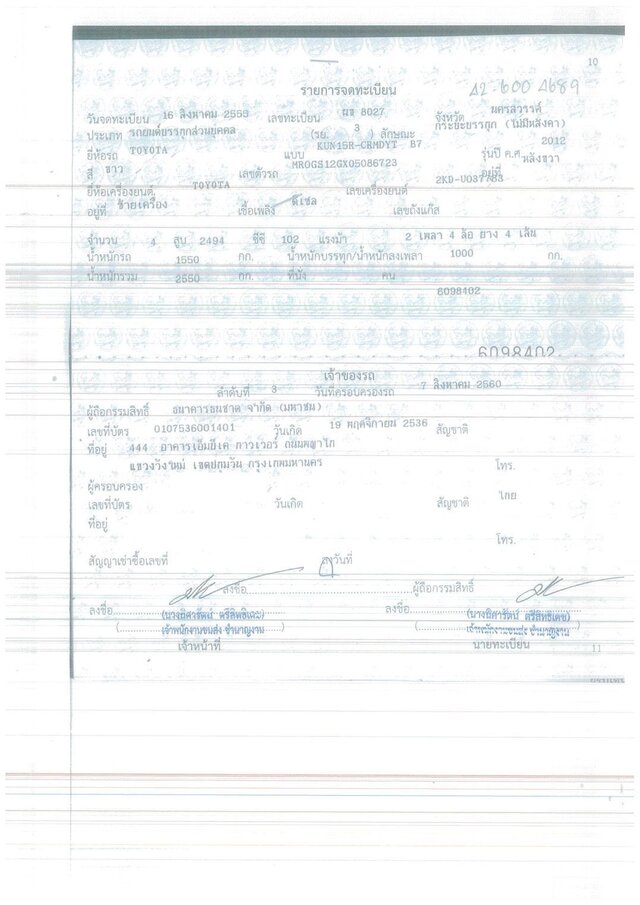 10
รายการจดทะเบียน A2-600 A689
วันจดทะเบียน 16 สิงหาคม 2555 เลขทะเบียน ผข 8027 จังหวัด นครสวรรค์
ประเภท รถยนต์บรรทุกส่วนบุคคล (รย. 3 ) ลักษณะ กระบะบรรทุก (ไม่มีหลังคา)
ยี่ห้อรถ TOYOTA แบบ KUN15R-CRMDYT B7 รุ่นปี ค.ศ. 2012
สี ขาว เลขตัวรถ MR0GS12GX05086723 อยู่ที่ หลังขวา
ยี่ห้อเครื่องยนต์ TOYOTA เลขเครื่องยนต์ 2KD-U037783
อยู่ที่ ซ้ายเครื่อง เชื้อเพลิง ดีเซล เลขถังแก๊ส
จำนวน 4 สูบ 2494 ซีซี 102 แรงม้า 2 เพลา 4 ล้อ ยาง 4 เส้น
น้ำหนักรถ 1550 กก. น้ำหนักบรรทุก/น้ำหนักลงเพลา 1000 กก.
น้ำหนักรวม 2550 กก. ที่นั่ง คน
6098402
6098402
เจ้าของรถ
ลำดับที่ 3 วันที่ครอบครองรถ 7 สิงหาคม 2560
ผู้ถือกรรมสิทธิ์ ธนาคารธนชาต จำกัด (มหาชน)
เลขที่บัตร 0107536001401 วันเกิด 19 พฤศจิกายน 2536 สัญชาติ
ที่อยู่ 444 อาคารเอ็มบีเค ทาวเวอร์ ถนนพญาไท
แขวงวังใหม่ เขตปทุมวัน กรุงเทพมหานคร โทร.
ผู้ครอบครอง
เลขที่บัตร วันเกิด สัญชาติ ไทย
ที่อยู่
โทร.
สัญญาเช่าซื้อเลขที่ วันที่
ลงชื่อ ผู้ถือกรรมสิทธิ์
ลงชื่อ ลงชื่อ
(นางธิศารัตน์ ตรีสิทธิเดช) (นางธิศารัตน์ ตรีสิทธิเดช)
เจ้าพนักงานขนส่ง ชำนาญงาน เจ้าพนักงานขนส่ง ชำนาญงาน
เจ้าหน้าที่ นายทะเบียน
11